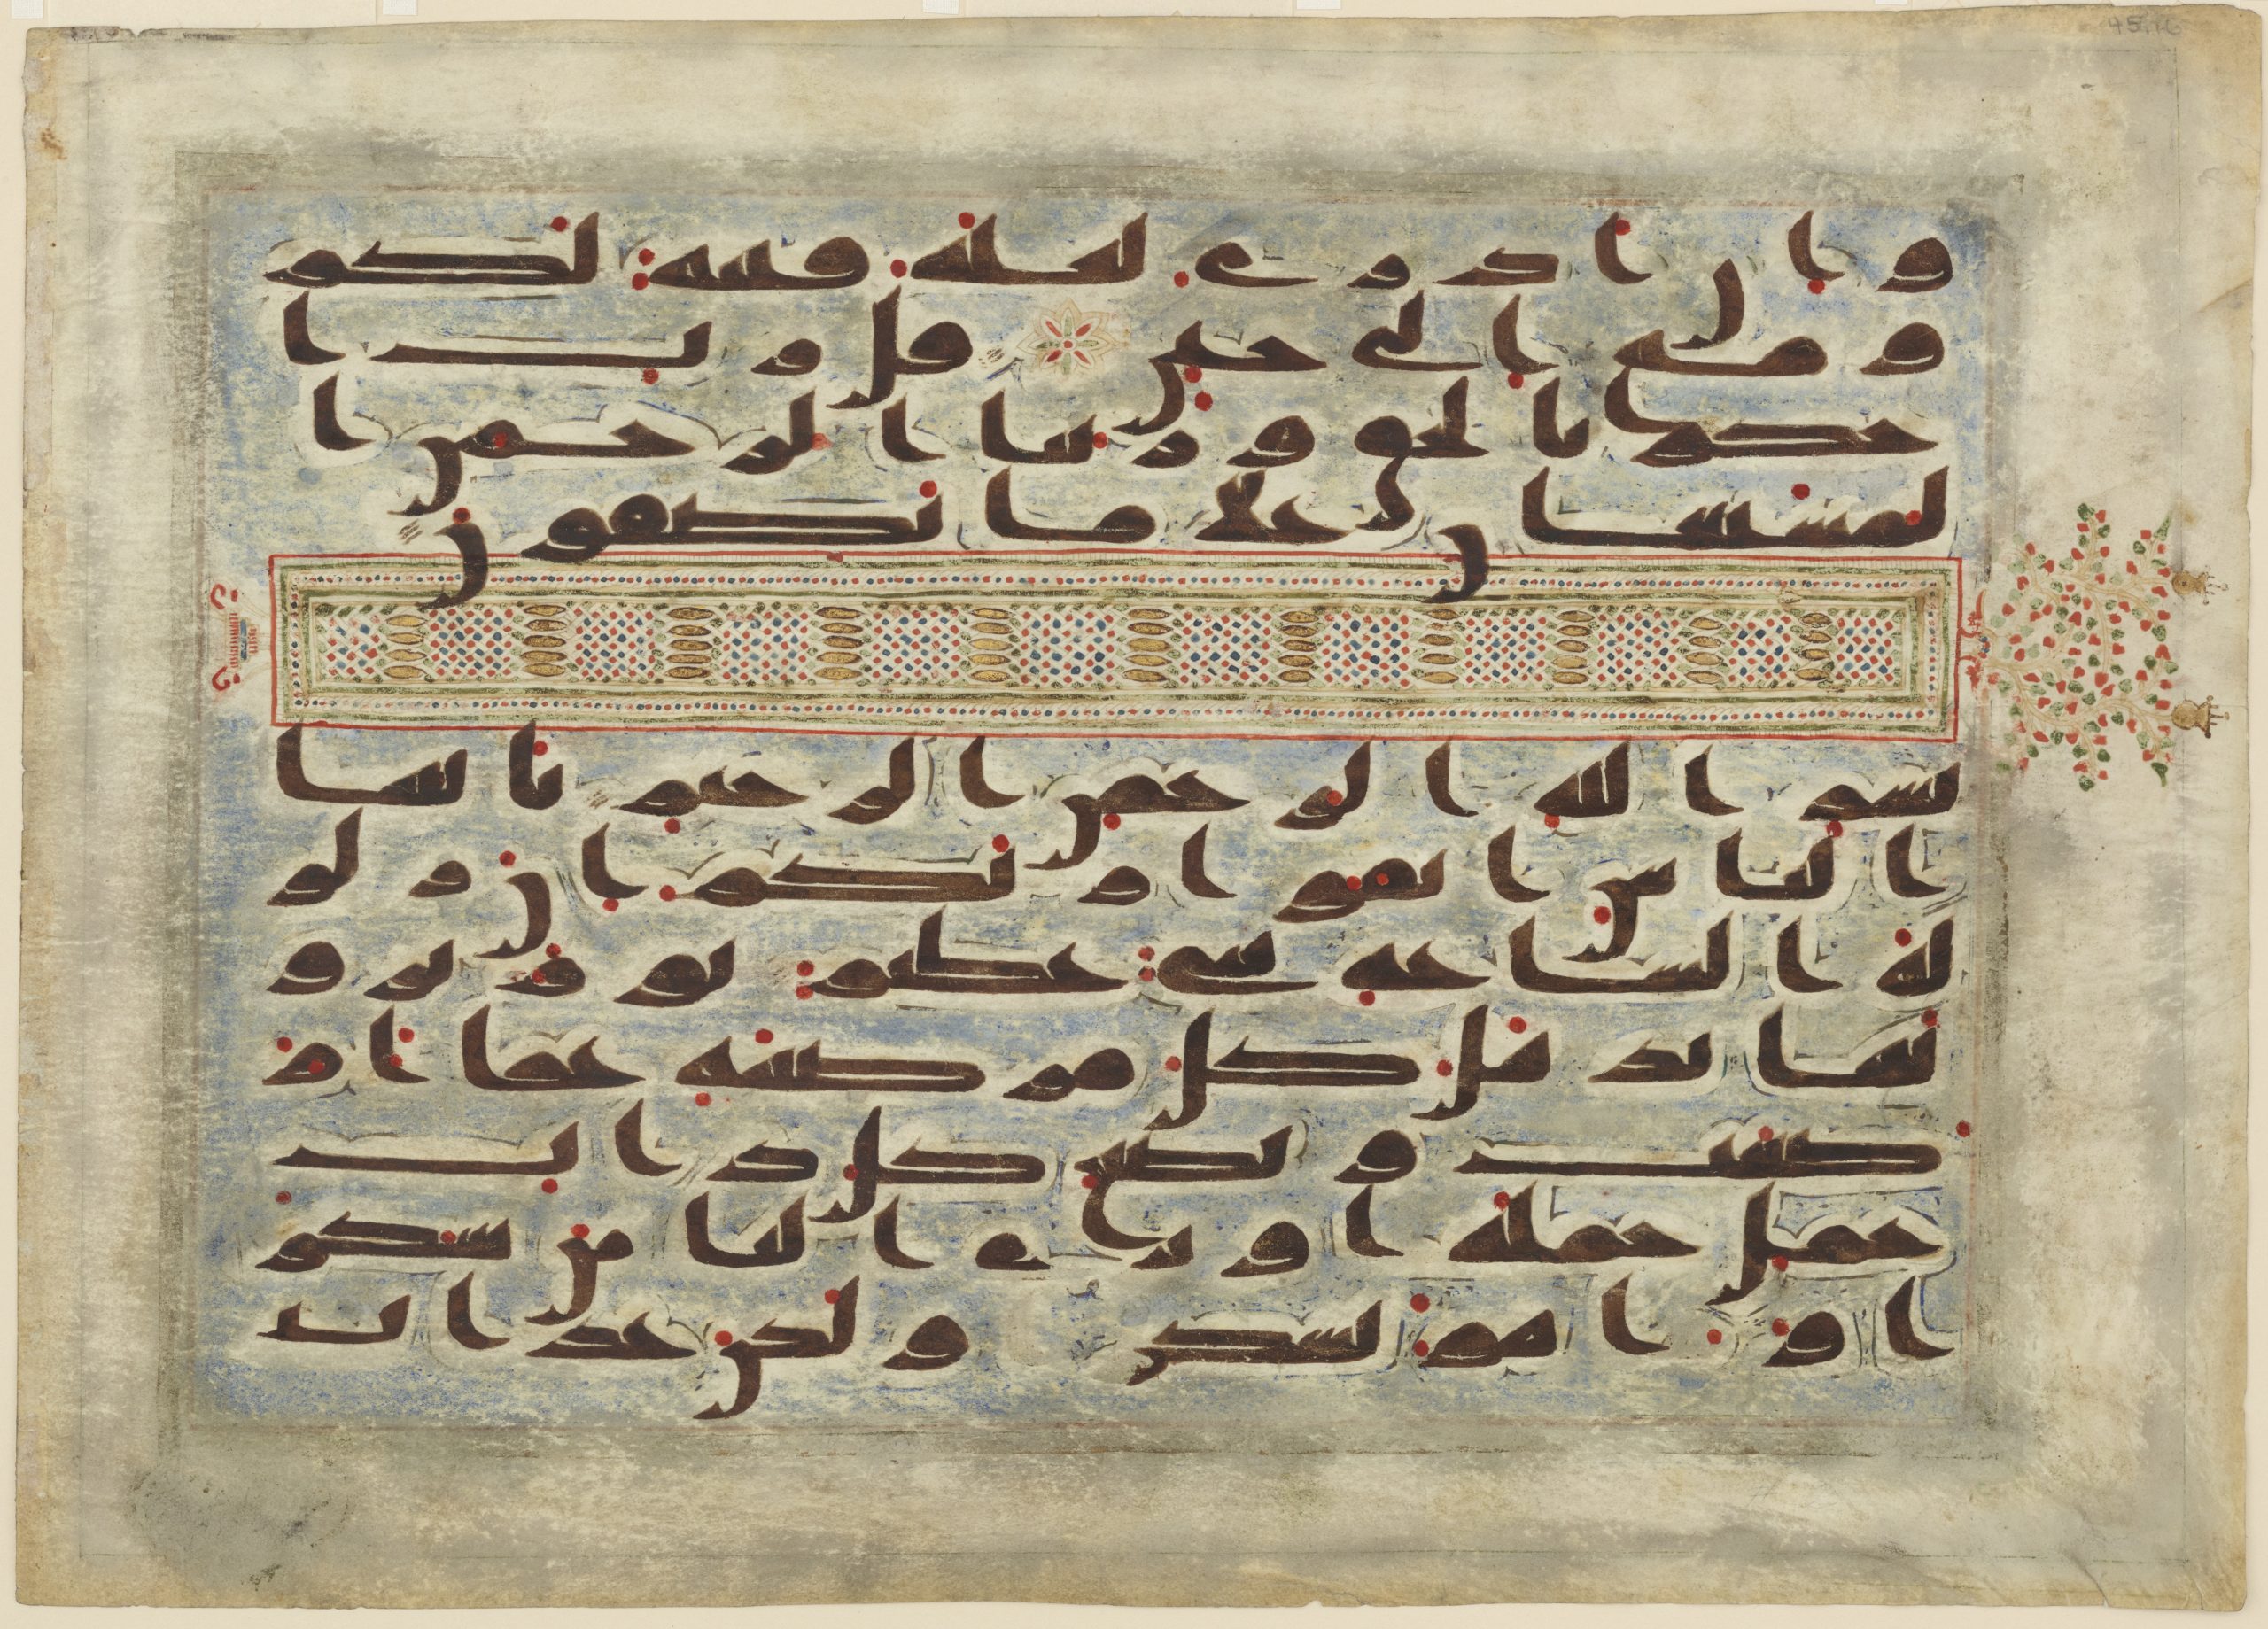 45.16
وان ادرى لعله فتنه لكم
ومتع الى حين قل رب ا
حكم بالحق وربنا الرحمن ا
لمستعان على ما تصفون
بسم الله الرحمن الرحيم يايها
الناس اتقوا ربكم ان زلز
له الساعه شى عظيم يوم ترو
نها تذهل كل مرضعه عما ار
ضعت وتضع كل ذات
حمل حملها وترى الناس سكر
ا وما هم بسكر ولكن عذاب